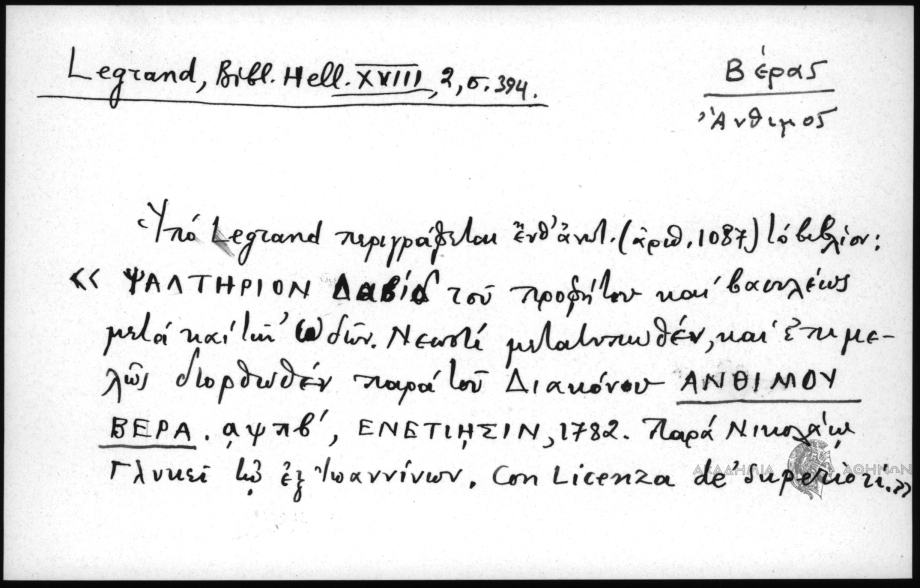 Legrand, Bibl. Hell. XVIII, 2, σ. 394.
Βέρας
Ἄνθιμος
Ὑπό Legrand περιγράφεται ἔνθ' ἀνωτ. (ἀριθ. 1087) τό βιβλίον:
« ΨΑΛΤΗΡΙΟΝ Δαβίδ τοῦ προφήτου καί βασιλέως
μετά καί τῶν ὠδῶν. Νεωστί μετατυπωθέν, καί ἐπιμε-
λῶς διορθωθέν παρά τοῦ Διακόνου ΑΝΘΙΜΟΥ
ΒΕΡΑ. αψπβ', ΕΝΕΤΙΗΣΙΝ, 1782. Παρά Νικολάῳ
Γλυκεῖ τῷ ἐξ Ἰωαννίνων. Con Licenza de' Superiori.»
ΑΚΑΔΗΜΙΑ ΑΘΗΝΩΝ